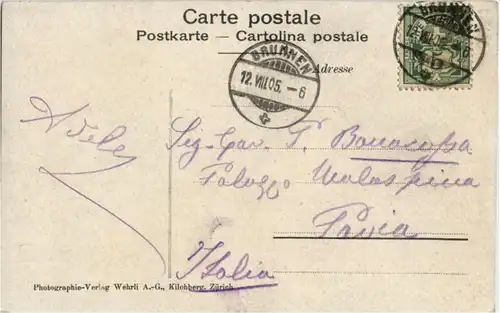 Carte postale
Postkarte – Cartolina postale
Adresse
BRUNNEN
12.VIII.05. – 6
BRUNNEN
12.VIII.05. – 6
Adele
Sig. Cav. P. Bonacossa
Palazzo Malaspina
Pavia
Italia
Photographie-Verlag Wehrli A.-G., Kilchberg, Zürich